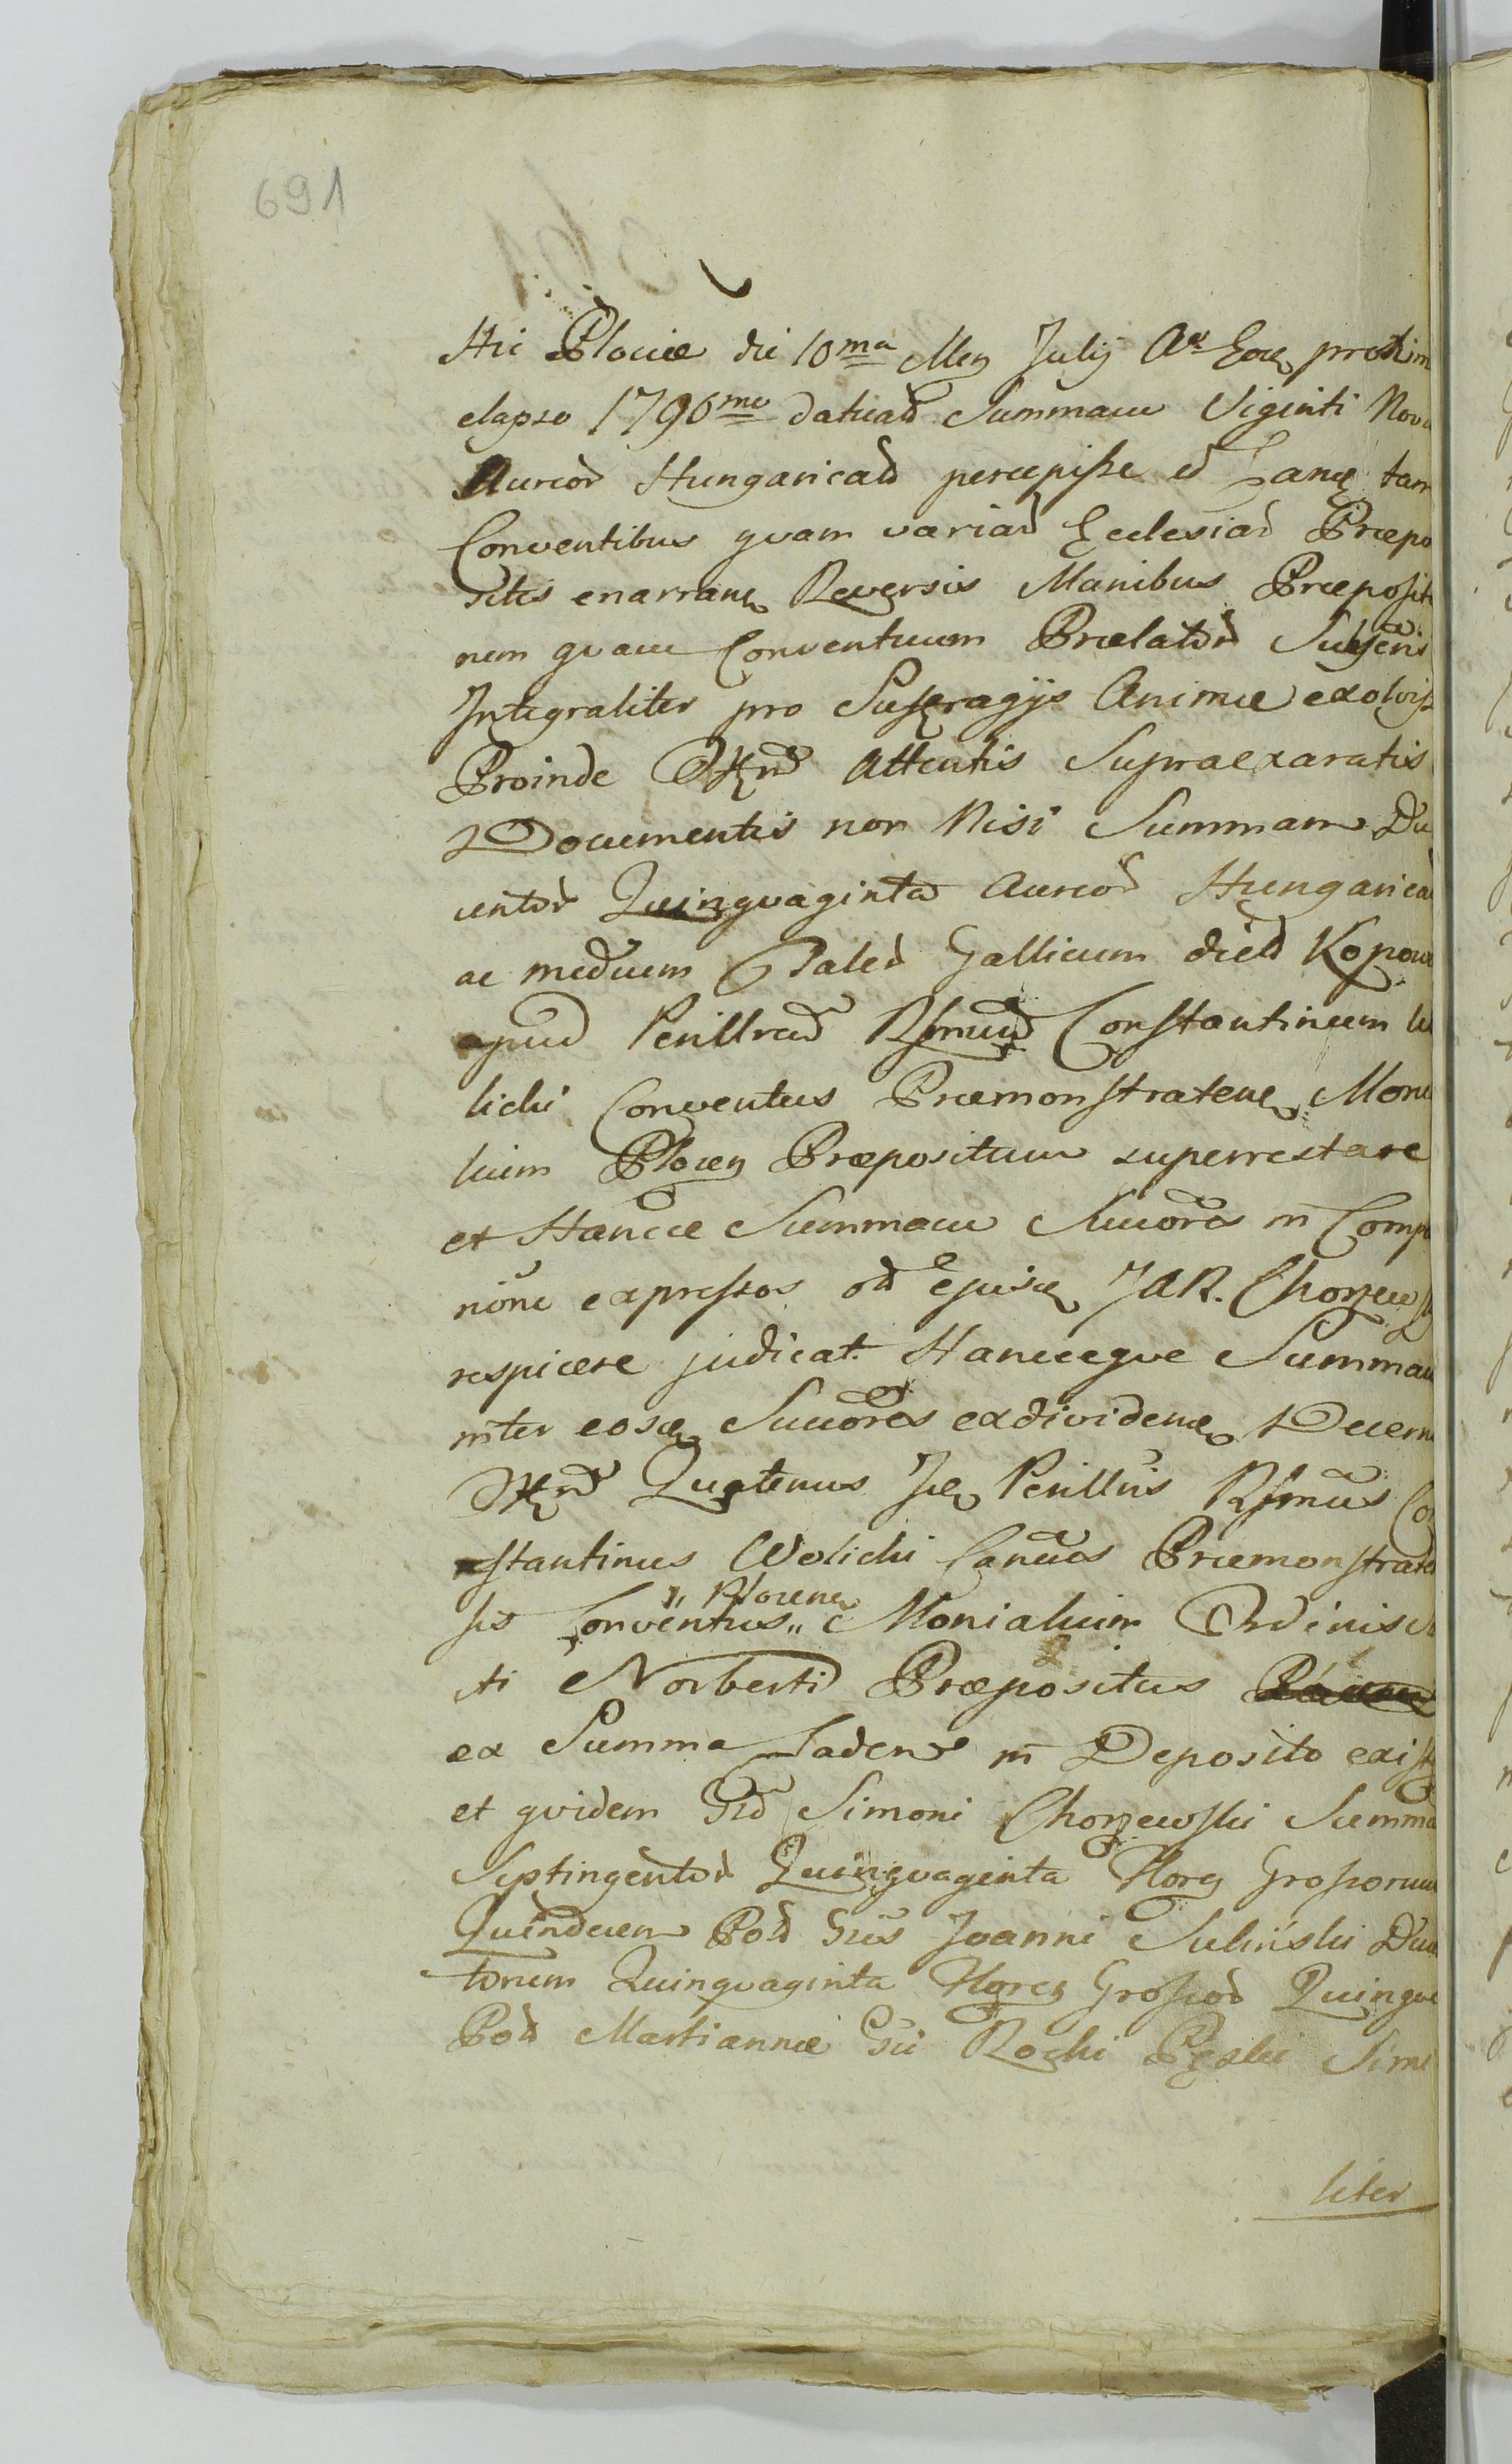 691
Hic Plociæ die 10ma Mens Julij Ao Eod proxim
elapso 1796mo datcad Summam Viginti Nov
Aureor Hungaricad percepisse et Eand tam
Conventibus qvam variad Ecclesiad Præpo
sitis enarrand Reversis Manibus Præposit
nem qvam Conventuum Prælator Subscris
Integraliter pro Sufragijs Animæ exolvisse
Proinde Attentis Supraexaratis
Documentis non Nisi Summam Du
centor Quinqvaginta Aureor Hungaricad
ac medium Taler Gallicum dictd Kopow
apud Perillred Rssmum Constantinum Wo
licki Conventus Præmonstratens Monia
lium Plocens Præpositum superrestare
et Hancce Summam Succores in Compo
nione expressos olim ejusd JAR. Chorzewsk
respicere judicat. Hancceqve Summam
inter eosd Succores exdividend Decern
Quatenus Jd Perillris Rssmus Con
stantinus Wolicki Cancus Præmonstraten
sis Conventus,, ,,Plocens Monialium Ordinis S
cti Norberti Præpositus
ex Summa Eadem in Deposito exist
et qvidem Gd Simoni Chorzewski Summa
Septingentor Quinqvaginta Flors Grossorum
Quindecem Pold Gris Joanni Suliński Ducen
torum Quinqvaginta Florens Grossor Quinqve
Pold Martiannæ Gri Rochi Pęski Simi
liter